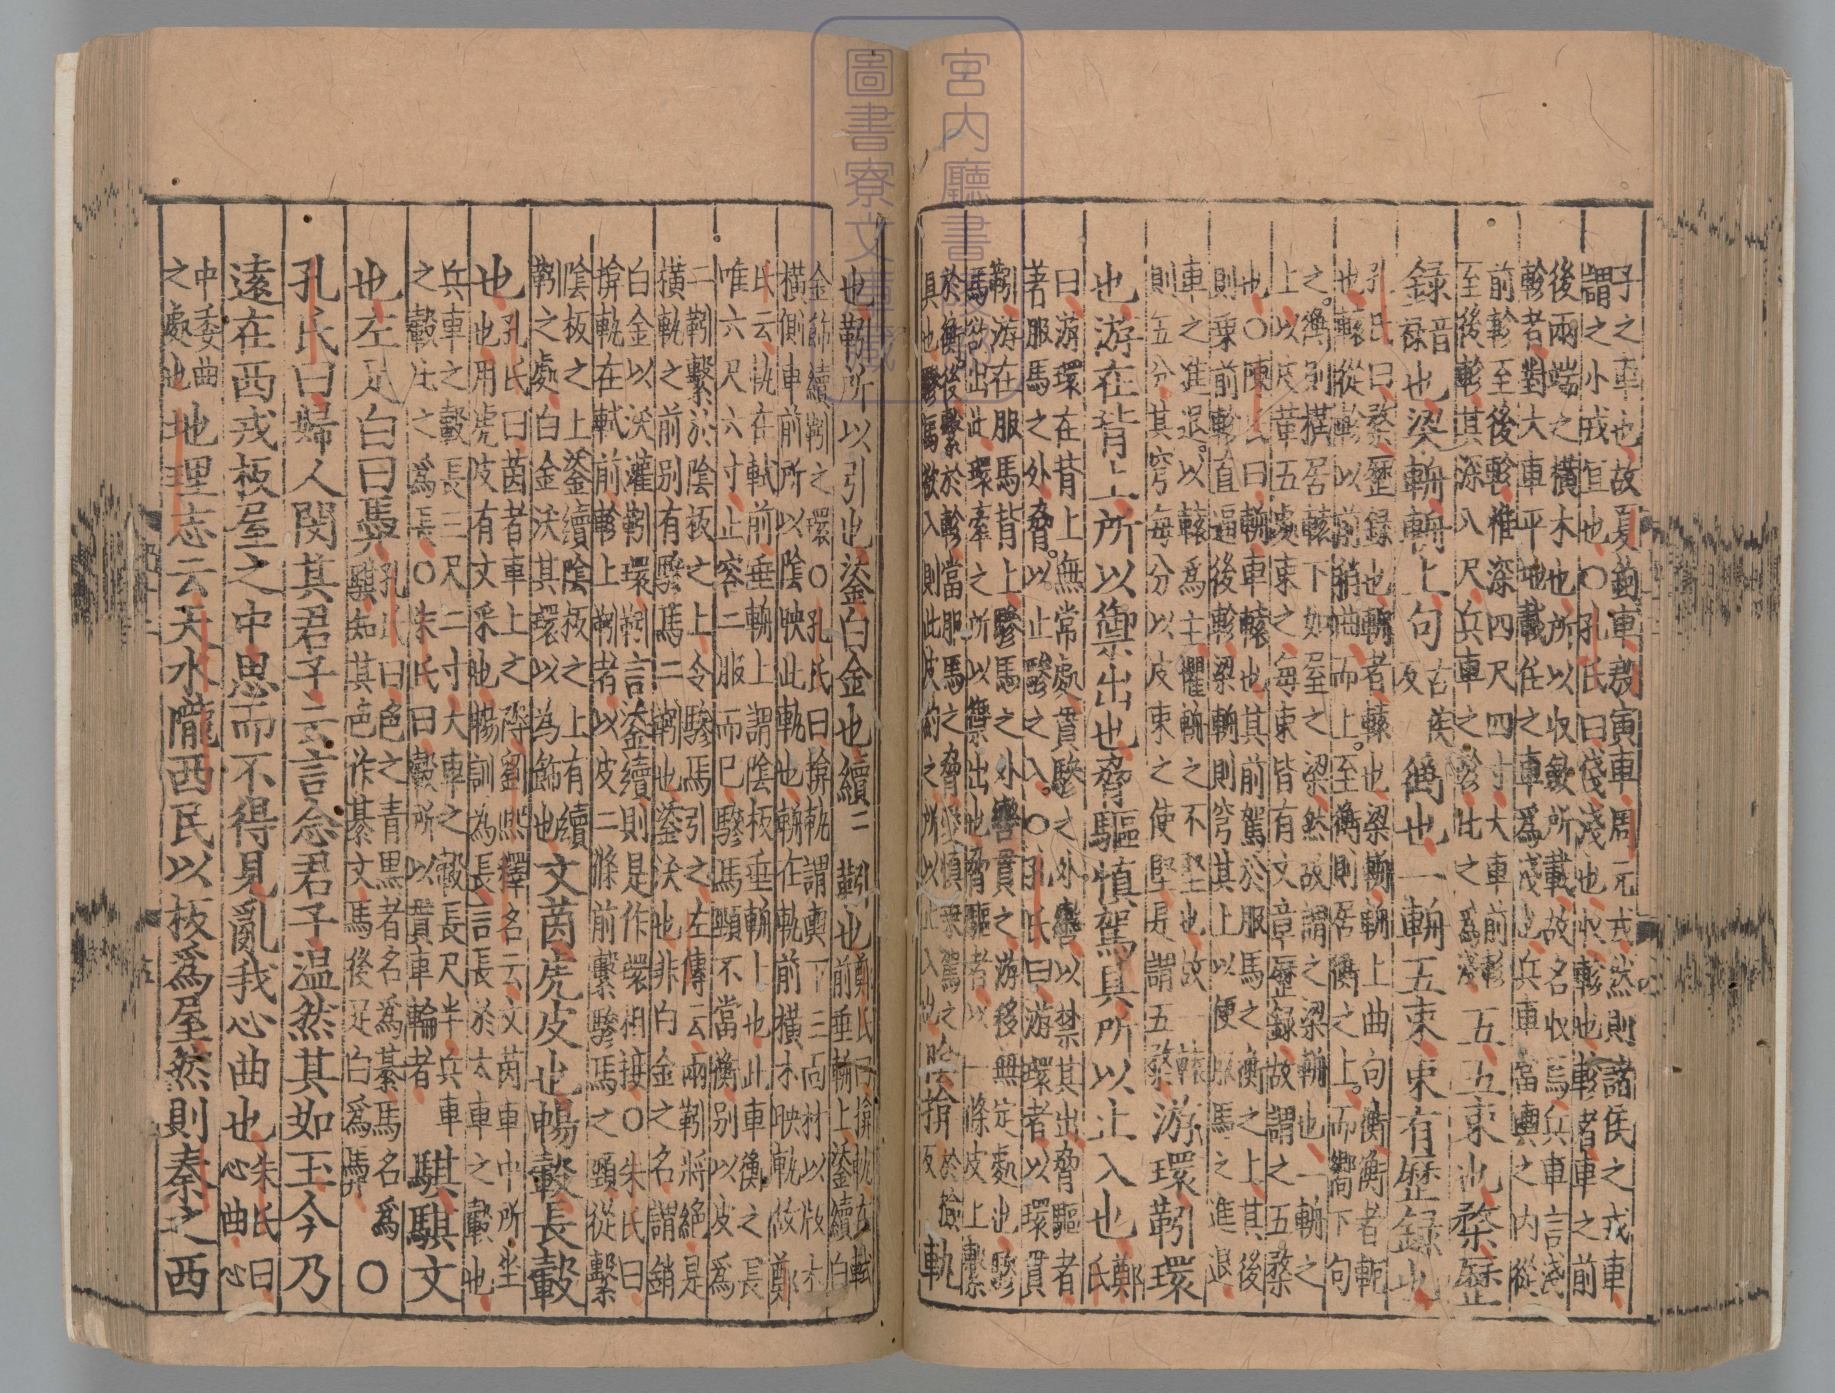 子之車也故夏鉤車殷寅車周元戎然則諸侯之戎車
謂之小戎宜也○孔氏曰俴淺也收軫也軫者車之前
後兩端之橫木也所以收斂所載故名收焉兵車言淺
軫者對大車平地載任之車為淺也兵車當輿之內從
前軫至後軫惟深四尺四寸大車前軫
至後軫其深八尺兵車之軫比之為淺
五五束也楘歷
錄音祿也梁輈輈上句古侯反衡也一輈五束束有歷錄也
孔氏曰楘歷錄也輈者轅也梁輈輈上曲句衡衡者軛
也轅從軫以前稍曲而上至衡則居衡之上而嚮下句
之衡則橫居轅下如屋之梁然故謂之梁輈也一輈之
上以皮革五處束之每束皆有文章歷錄故謂之五楘
也○陳氏曰輈車轅也其前駕於服馬之衡之上其後
則乗前軫直逼後軫梁輈則穹其上以便服馬之進退
車之進退以轅為主懼輈之不堅也故一轅
則五分其穹每分以皮束之使堅是謂五楘
游環靷環
也游在背上所以禦出也脅驅慎駕具所以止入也鄭氏
曰游環在背上無常處貫驂之外轡以禁其出脅驅者
著服馬之外脅以止驂之入○孔氏曰游環者以環貫
靷游在服馬背上驂馬之外轡貫之游移無定處也驂
馬欲出此環牽之所以禦出也脅驅者以一條皮上繫
於衡後繫於軫當服馬之脅愛慎乘駕之
具也驂馬欲入則此皮約之所以止入也
陰揜於檢反軌
也靷所以引也鋈白金也續續靷也鄭氏曰揜軌在軾前垂輈上鋈續白
金飾續靷之環○孔氏曰揜軌謂輿下三面材以版木
橫側車前所以陰映此軌也輈在軌前橫木映軌故鄭
氏云軌在軾前垂輈上謂陰板垂輈上也此車衡之長
唯六尺六寸止容二服而已驂馬頸不當衡別以皮為
二靷繫於陰板之上令驂馬引之左傳云兩靷將絕是
橫軌之前別有驂馬二靷也鋈沃也非白金之名謂銷
白金以沃灌靷環靷言鋈續則是作環相接○朱氏曰
揜軌在軾前軫上靷者以皮二條前繫驂馬之頸從繫
陰板之上鋈續陰板之上有續
靷之處白金沃其環以為飾也
文茵虎皮也暢轂長轂
也孔氏曰茵者車上之褥劉熙釋名云文茵車中所坐
也用虎皮有文采也暢訓為長言長於大車之轂也
兵車之轂長三尺二寸大車之轂長尺半兵車
之轂比之為長○朱氏曰轂所以貫車輪者
騏騏文
也左足白曰馵孔氏曰色之青黑者名為綦馬名為
騏知其色作綦文馬後足白為馵○
孔氏曰婦人閔其君子云言念君子温然其如玉今乃
遠在西戎板屋之中思而不得見亂我心曲也朱氏曰心曲心
中委曲之處也地理志云天水隴西民以板爲屋然則秦之西
宮内廳書
圖書寮文庫